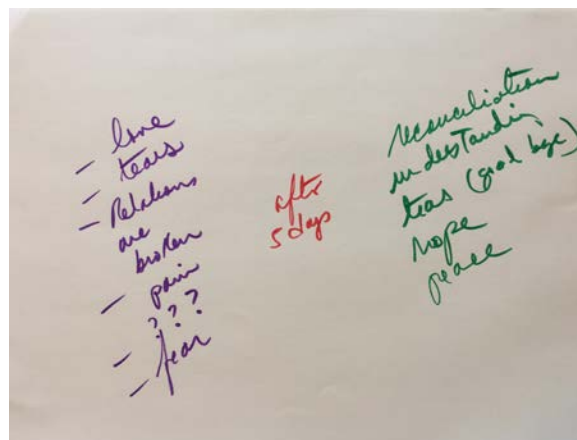 - love
- tears
- Relations
are
broken
- pain
- ???
- fear
after
5 days
reconciliation
understanding
teas (good bye)
hope
peace